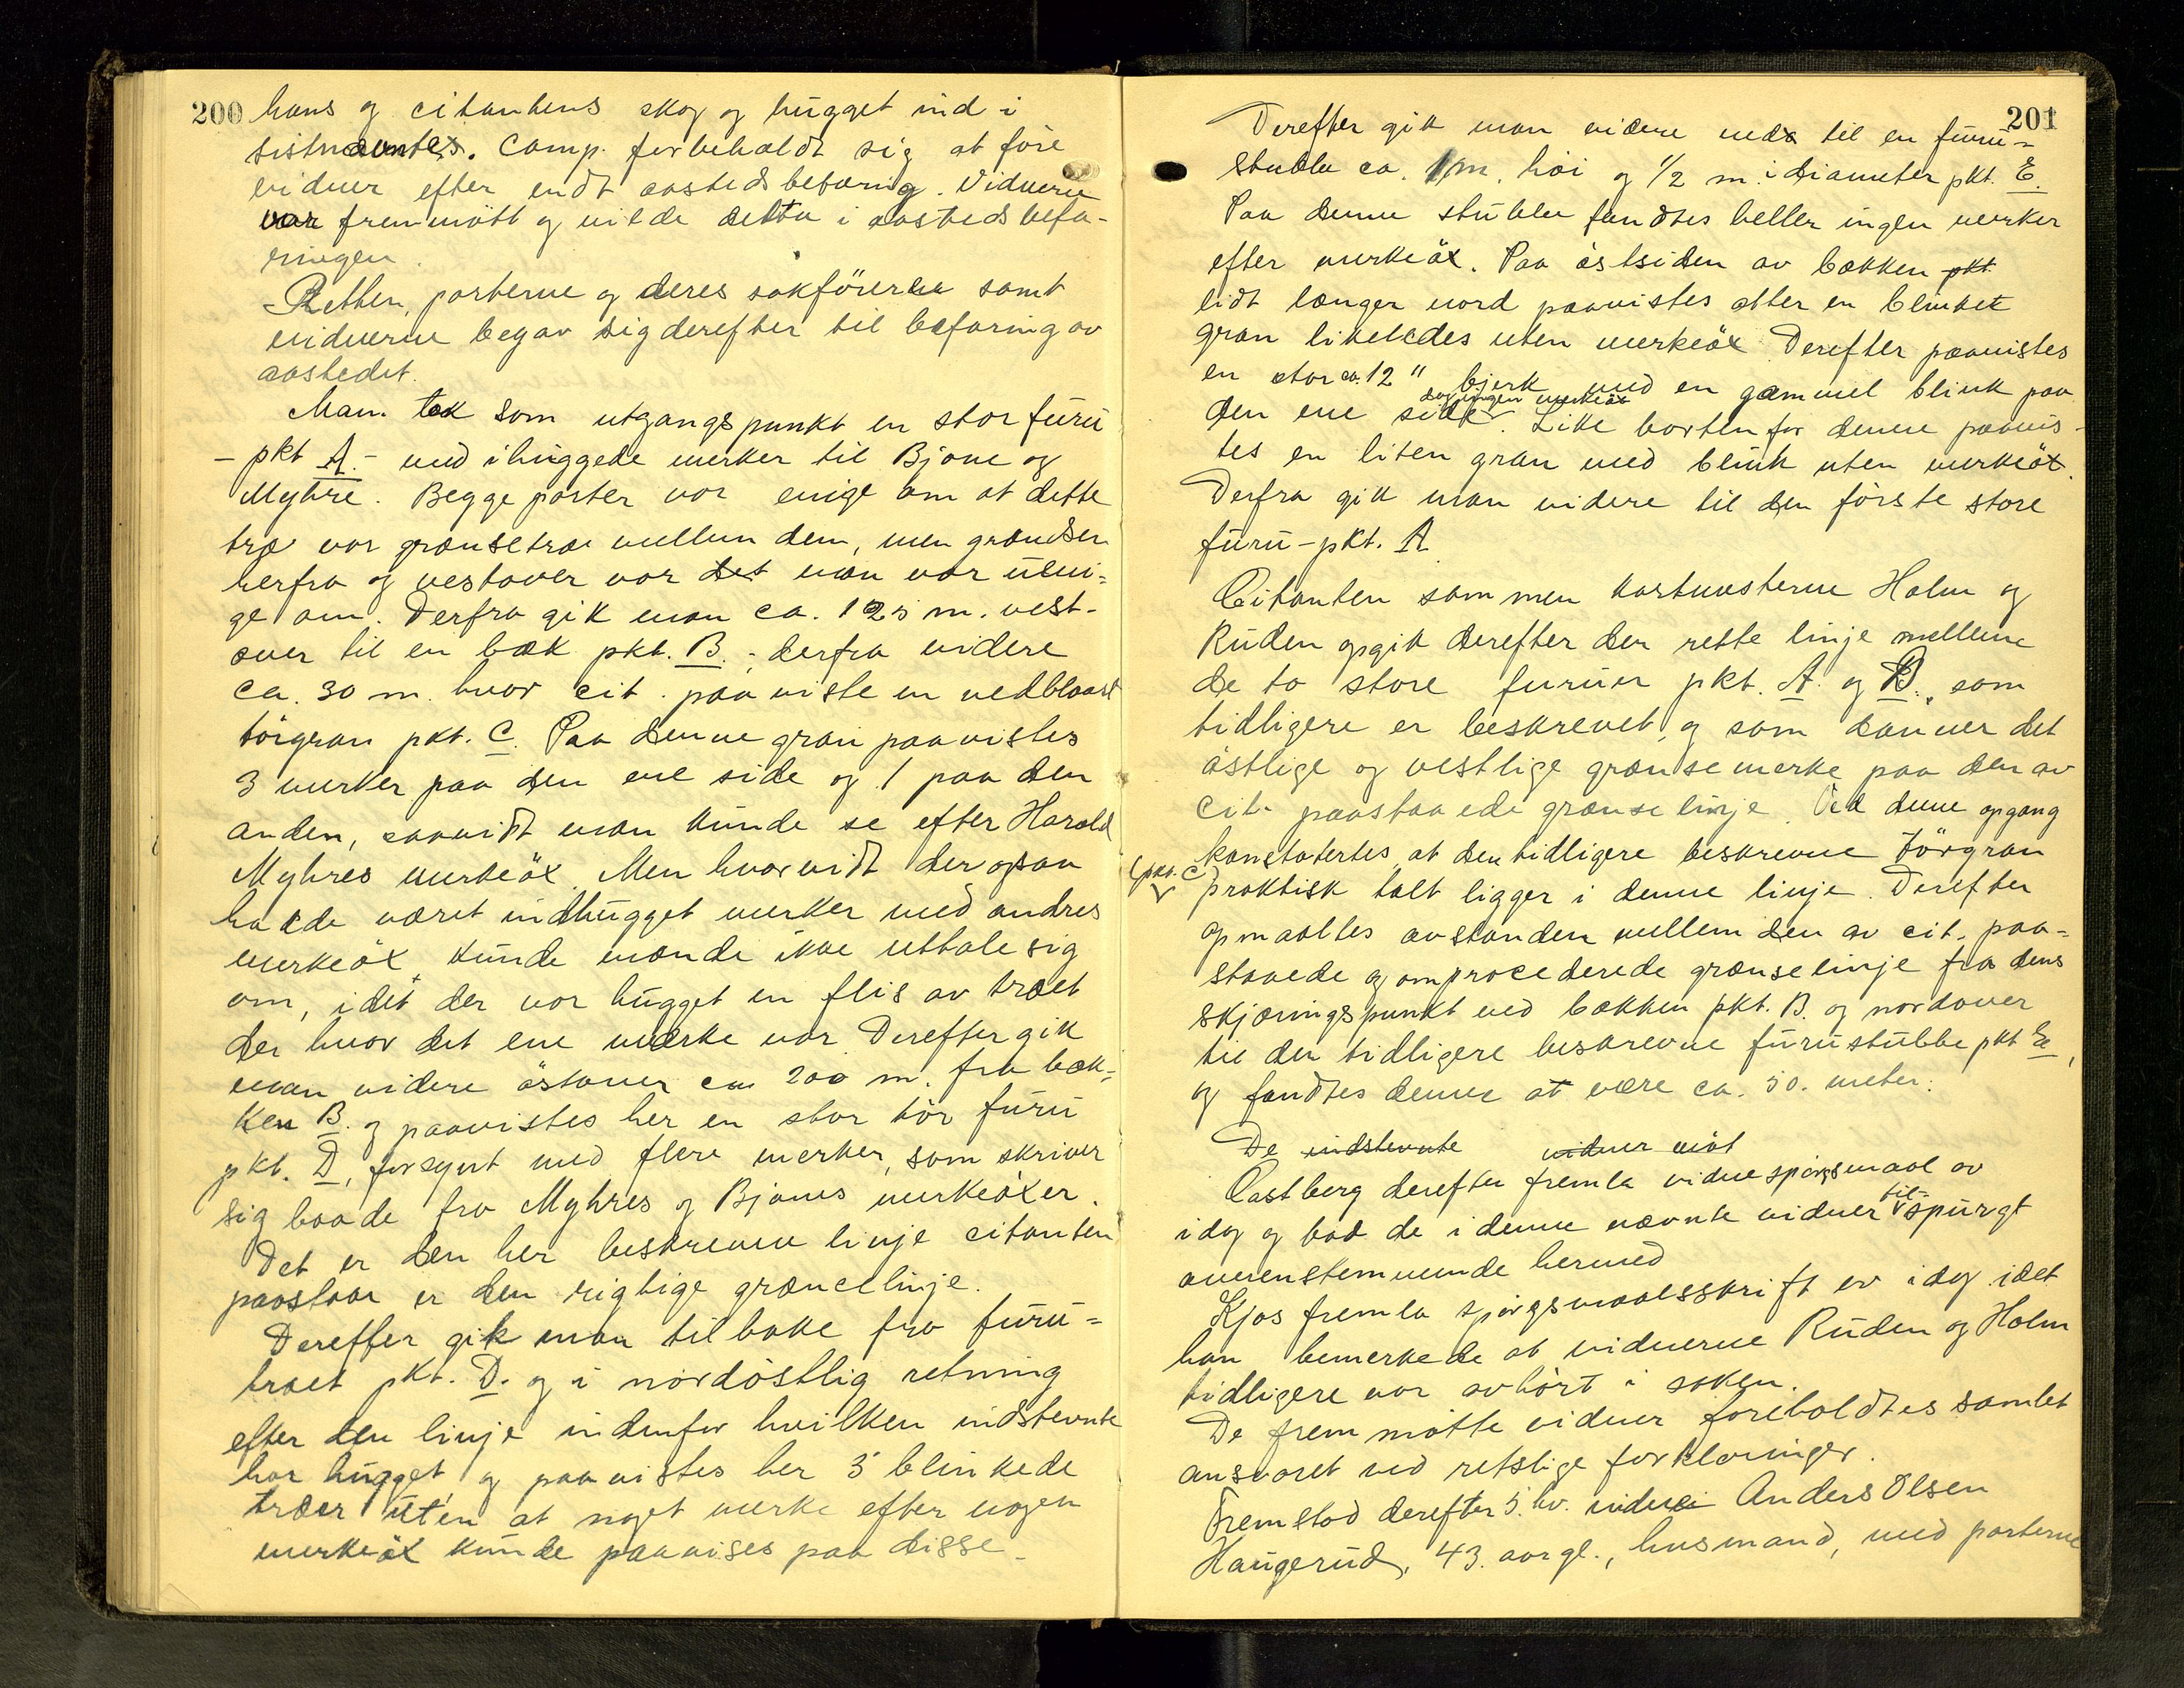 200
hans og citantens skog og hugget ind i
sistnævntes. Comp. forbeholdt sig at føre
vidner efter endt aastedsbefaring. Vidnerne
var fremmøtt og vilde delta i aastedsbefa-
ringen.
Retten, parterne og deres sakførere samt
vidnerne begav sig derefter til befaring av
aastedet.
Man tok som utgangspunkt en stor furu
- pkt A. - med ihuggede merker til Bjone og
Myhre. Begge parter var enige om at dette
træ var grænsetræ mellem dem, men grændsen
herfra og vestover var det man var ueni=
ge om. Derfra gik man ca. 125 m. vest-
over til en bæk pkt. B. - derfra videre
ca. 30 m. hvor cit. paaviste en nedblaast
törgran pkt. C. Paa denne gran paavistes
3 merker paa den ene side og 1 paa den
anden, saavidt man kunde se efter Harald
Myhres merkeöx. Men hvorvidt der opaa
hadde været indhugget merker med andres
merkeöx kunde mænde ikke uttale sig
om, idet der var hugget en flis av træet
der hvor det ene merke var. Derefter gik
man videre østover ca. 200 m. fra bæk-
ken B. og paavistes her en stor tör furu
pkt. D, forsynt med flere merker, som skriver
sig baade fra Myhres og Bjones merkeöxer.
Det er den her beskrevne linje citanten
paastaar er den rigtige grænselinje.
Derefter gik man tilbake fra furu=
træet pkt. D. og i nordøstlig retning
efter den linje indenfor hvilken indstevnte
har hugget, og paavistes her 3 blinkede
trær uten at noget merke efter nogen
merkeöx kunde paavises paa disse.
201
Derefter gik man videre ned til en furu=
stubbe ca. 1 m. høi og 1/2 m. i diameter pkt. E.
Paa denne stubbe fandtes heller ingen merker
efter merkeöx. Paa østsiden av bækken pkt.
lidt længer nord paavistes atter en blinket
gran likeledes uten merkeöx. Derefter paavistes
en stor ca. 12" bjerk med en gammel blink paa
dog ingen merkeöx
den ene side. Like bortenfor denne paavis-
tes en liten gran med blink uten merkeöx.
Derfra gik man videre til den første store
furu - pkt. A
Citanten sammen kartvisterne Holm og
Ruden opgik derefter den rette linje mellem
de to store furuer pkt. A og D., som
tidligere er beskrevet, og som danner det
østlige og vestlige grænsemerke paa den av
cit. paastaaede grænselinje. Ved denne opgang
konstatertes at den tidligere beskrevne törgran
(pkt. C
praktisk talt ligger i denne linje. Derefter
opmaaltes avstanden mellem den av cit. paa=
staaede og omprocederede grænselinje fra dens
skjæringspunkt ved bækken pkt. B. og nordover
til den tidligere beskrevne furustubbe pkt E,
og fandtes denne at være ca. 50. meter.
De indstevnte vidner møt
Castberg derefter fremla vidnespørgsmaal av
idag og bad de i denne nævnte vidner tilspurgt
overenstemmende hermed
Kjos fremla spörgsmaalsskrift av idag idet
han bemerkede at vidnerne Ruden og Holm
tidligere var avhørt i saken.
De fremmøtte vidner foreholdtes samlet
ansvaret ved retslige forklaringer.
Fremstod derefter 5. hv. vidne Anders Olsen
Haugerud, 43. aar gl., husmand, med parterne